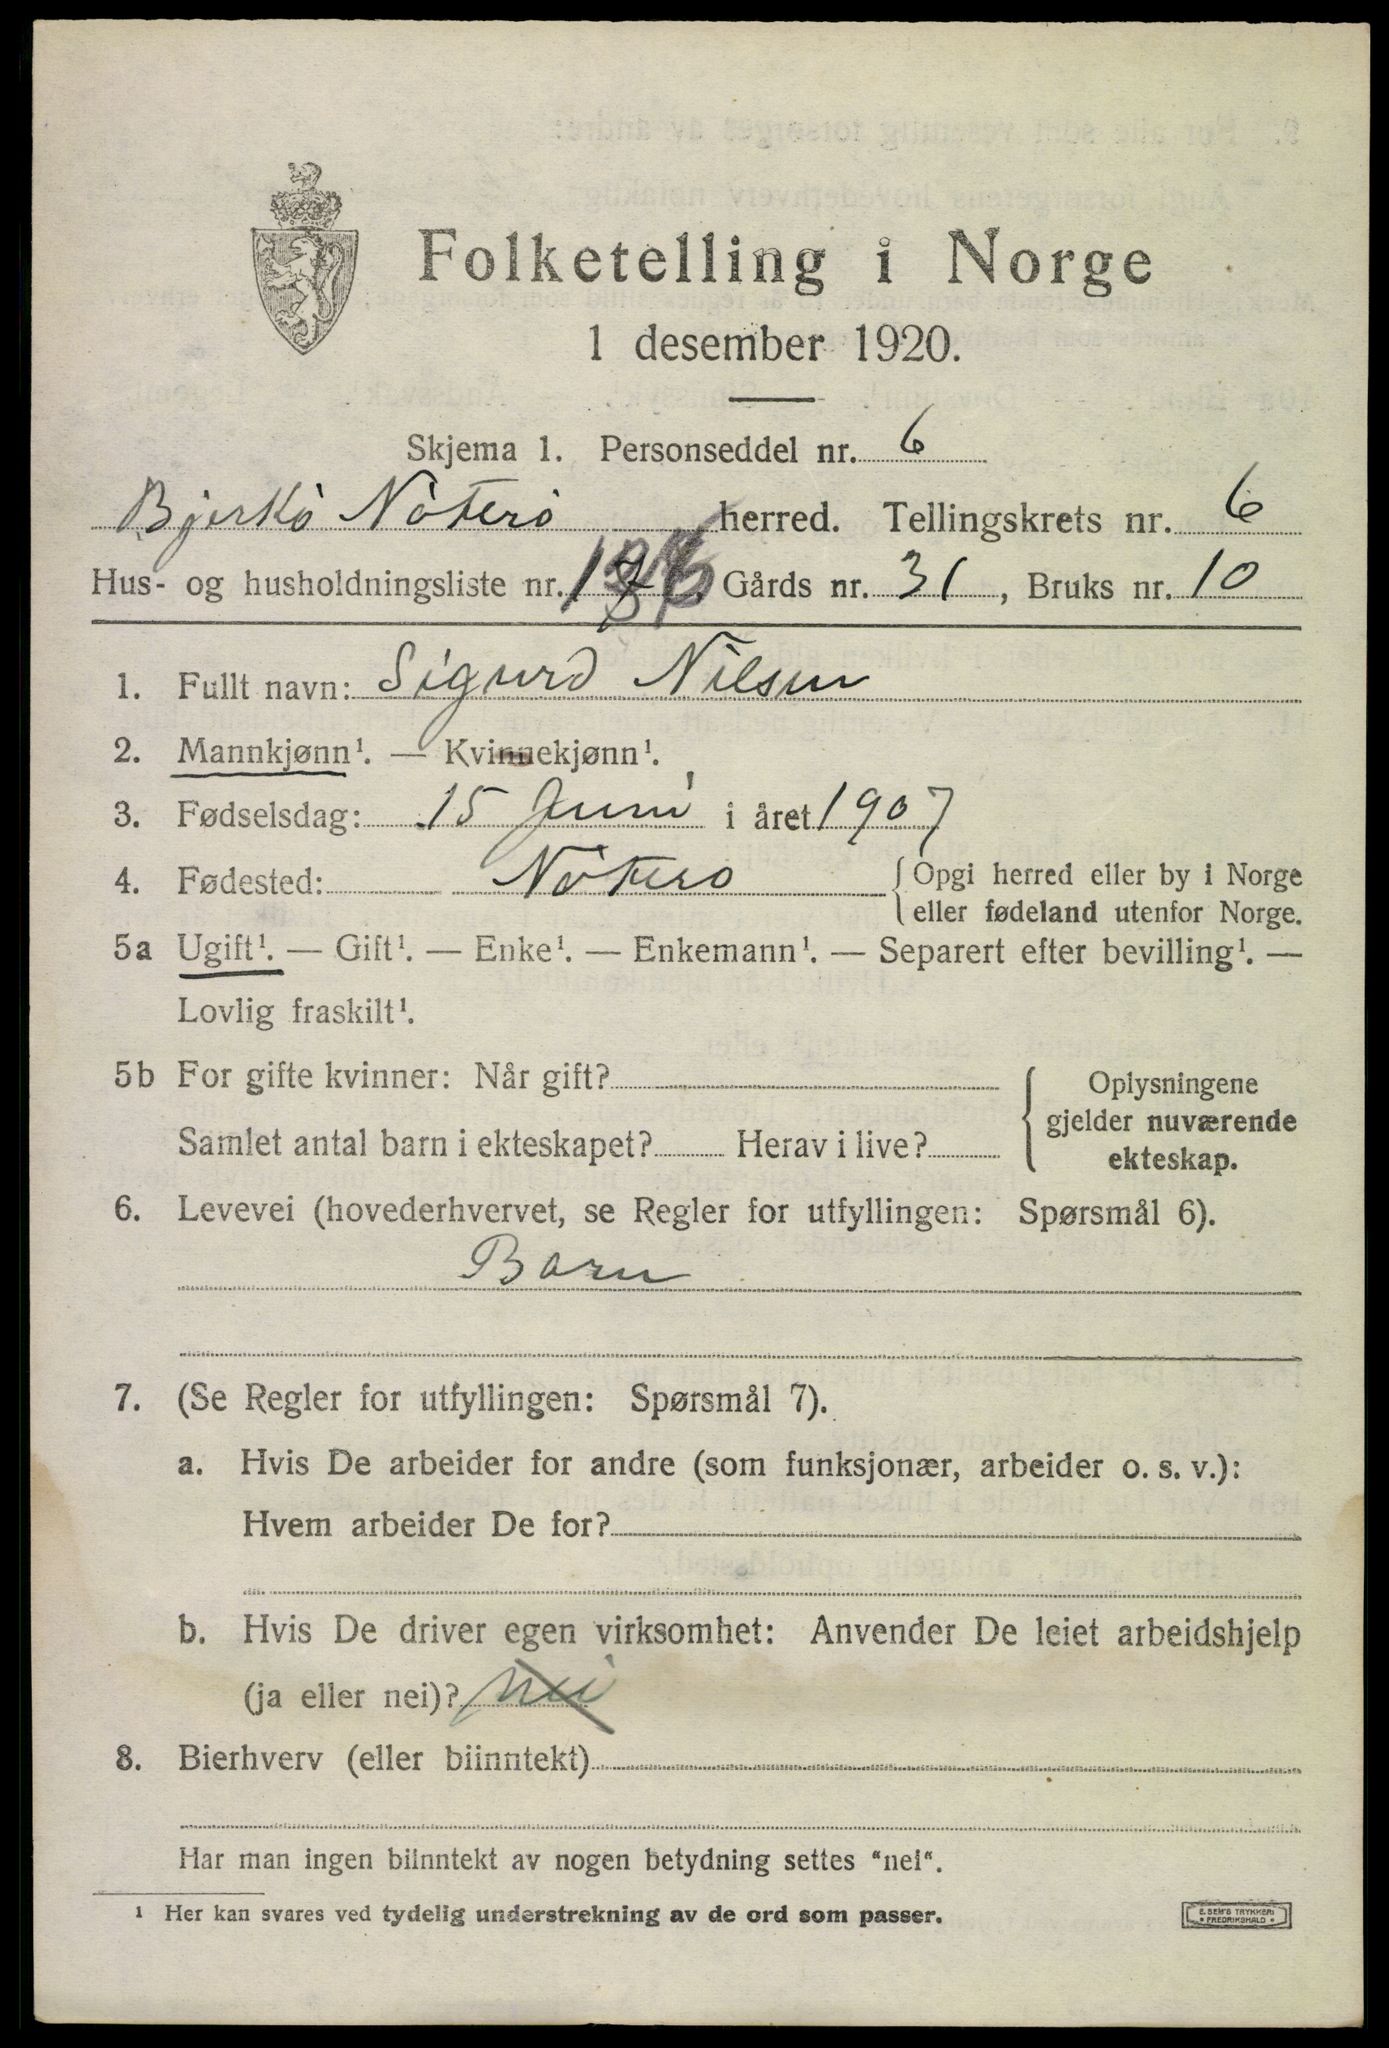 Folketelling i Norge
1 desember 1920.
Skjema 1. Personseddel nr. 6
Bjerkö Nöterö herred. Tellingskrets nr. 6
Hus- og husholdningsliste nr. Gårds nr. 31, Bruks nr. 10
1. Fullt navn: Sigurd Nilsen
2. Mannkjønn¹. — Kvinnekjønn¹.
3. Fødselsdag: 15 Juni i året 1907
4. Fødested: Nöterö { Opgi herred eller by i Norge
eller fødeland utenfor Norge.
5a Ugift¹. — Gift¹. — Enke¹. — Enkemann¹. — Separert efter bevilling¹. —
Lovlig fraskilt¹.
5b For gifte kvinner: Når gift? { Oplysningene
gjelder nuværende
Samlet antal barn i ekteskapet? Herav i live?
ekteskap.
6. Levevei (hovederhvervet, se Regler for utfyllingen: Spørsmål 6).
Barn
7. (Se Regler for utfyllingen: Spørsmål 7).
a. Hvis De arbeider for andre (som funksjonær, arbeider o. s. v.):
Hvem arbeider De for?
b. Hvis De driver egen virksomhet: Anvender De leiet arbeidshjelp
(ja eller nei)? nei
8. Bierhverv (eller biinntekt)
Har man ingen biinntekt av nogen betydning settes "nei".
¹ Her kan svares ved tydelig understrekning av de ord som passer.
E. SEM'S TRYKKERI
• FREDRIKSHALD •